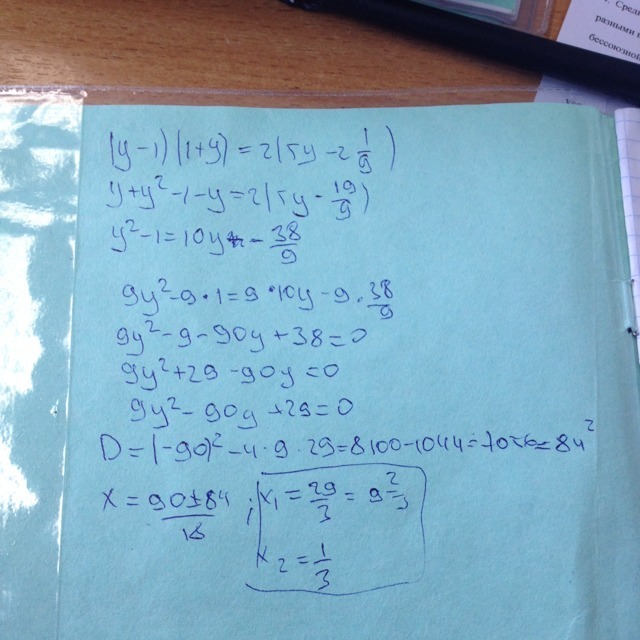 Сред
разными
бессоюзной
(y-1)(1+y)=2(5y-2 1/9)
y+y²-1-y=2(5y-19/9)
y²-1=10y-38/9
9y²-9·1=9·10y-9·38/9
9y²-9-90y+38=0
9y²+29-90y=0
9y²-90y+29=0
D=(-90)²-4·9·29=8100-1044=7056=84²
x=90±84/18; x₁=29/3=9 2/3
x₂=1/3